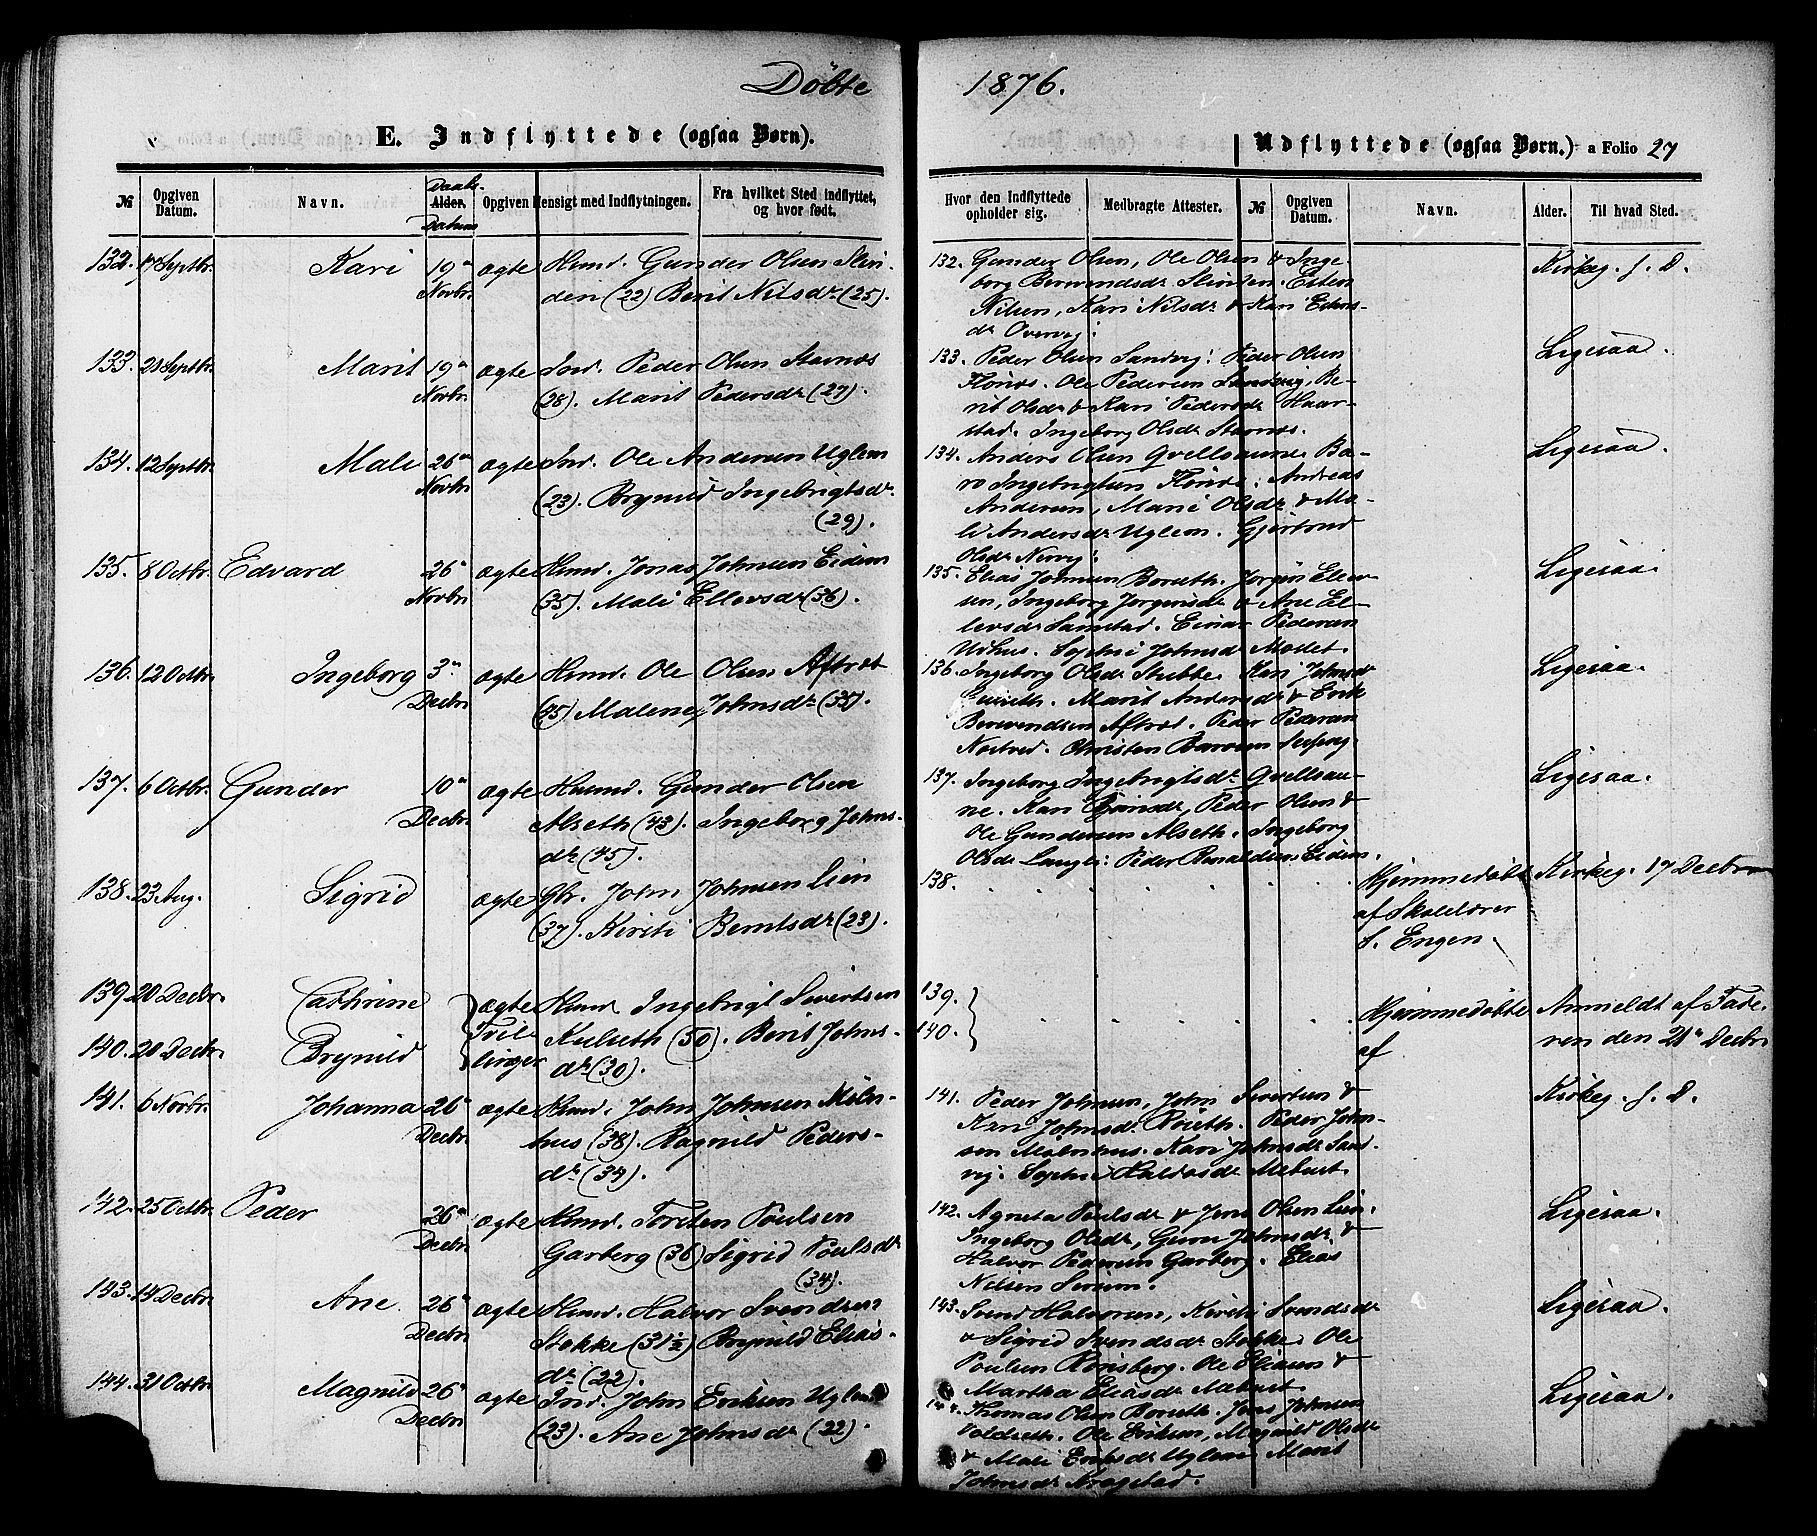 Döbte 1876.
E. Indflyttede (ogsaa Børn).
Udflyttede (ogsaa Børn.) - a Folio 27
№ Opgiven Datum. Navn. Daabs- Alder. Datum Opgiven Hensigt med Indflytningen. Fra hvilket Sted indflyttet, og hvor født.
Hvor den Indflyttede opholder sig. Medbragte Attester. № Opgiven Datum. Navn. Alder. Til hvad Sted.
132. 17 Septbr. Kari 19de Novbr. ægte Huusmd. Gunder Olsen Slin-
den (22) Berit Nilsdr (25).
132. Gunder Olsen, Ole Olsen & Inge-
borg Berwendsdr Slinden. Esten
Nilsen, Kari Nilsdr & Kari Estens-
dr Overvig:
Kirkeg. f. D.
133. Septbr. Marit 19de Novbr. ægte Ind. Peder Olsen Stavnes
(28). Marit Pedersdr (27).
133. Peder Olsen Sandvig: Peder Olsen
Flönes. Ole Pedersen Sandvig, Be-
rit Olsdr & Kari Pedersdr Haar-
stad. Ingeborg Olsdr Stavnes.
Ligesaa.
134. 12 Septbr. Mali 26de Novbr. ægte Ind. Ole Andersen Uglem
(23). Brynild Ingebrigtsdr.
(29).
134. Anders Olsen Qvellsaune Ba-
ro Ingebrigtsen Flönes. Andreas
Andersen, Marie Olsdr & Ma-
li Andersdr Uglem. Gjertrud
Olsdr Nervig:
Ligesaa.
135. 8 Octbr. Edvard 26 Novbr. ægte Huusmd. Jonas Johnsen Eidem
(35). Mali Ellevsdr (36).
135. Elias Johnsen Boruth. Jørgen Ellev-
sen, Ingeborg Jørgensdr & Ane El-
levsdr Samstad. Einar Pedersen
Udhus. Sophie Johnsdr Moslet.
Ligesaa.
136. 12 Octbr. Ingeborg 3de Decbr. ægte Huusmd. Ole Olsen Aftret
Malene Johnsdr
136. Ingeborg Olsdr Stubbe. Kari Johnsdr
Marit Andersdr & Erik
Berwendsen Aftret. Peder Pedersen
Christen Baroen
Ligesaa.
137. 6 Octbr. Gunder 10de Decbr. ægte Huusmd. Gunder Olsen
Alseth (43). Ingeborg Johns-
dr (45).
137. Ingeborg Ingebrigtsdr Qvellsau-
ne. Kari Peder Olsen &
Ole Gundersen Alseth. Ingeborg
Olsdr Langli: Peder Eidem.
Ligesaa.
138. 23 Aug. Sigrid ægte Gbr. John Johnsen Lien
(37). Kirsti Berntsdr (23).
138. Hjemmedöbt
af Skolelærer
f. Engen.
Kirkeg. 17 Decbr
139. 20 Decbr. Cathrine
140. 20 Decbr. Brynild
ægte Tvil-
linger
Huusmd Ingebrigt Sivertsen
Kulseth (50). Berit Johns-
dr (30).
139.
140.
Hjemmedöbte
af
Anmeldt af Fade-
ren den 21de Decbr
141. 6 Novbr. Johanna 26 Decbr. ægte Huusmd. John Johnsen Mihn-
hus (38). Ragnild Peders-
dr (34).
141. Peder Johnsen, John Sivertsen &
Kari Johnsdr. Peder John-
sen Kari Johnsdr Sand-
vig. Sophie Haldosdr Mebust.
Kirkeg. f. D.
142. 25 Octbr. Peder 26de Decbr. ægte Huusmd. Torsten Poulsen
Garberg (36) Sigrid Poulsdr
(34).
142. Agneta Poulsdr & Jens Olsen Lien.
Ingeborg Olsdr, Guru Johnsdr &
Halvor Pedersen Garberg. Elias
Nilsen
Ligesaa.
143. 14 Decbr. Ane 26de Decbr. ægte Huusmd. Halvor Svendsen
Stokke (31½) Brynild Elias-
dr (22).
143. Svend Halvorsen, Kirsti Svendsdr
& Sigrid Svendsdr Stokke. Ole
Poulsen Rönsberg. Ole Eliasen &
Martha Eliasdr Mebust.
Ligesaa.
144. 31 Octbr. Magnild 26de Decbr. ægte Ind. John Eriksen Uglem
(23). Ane Johnsdr (22).
144. Thomas Olsen Boruth. Jens Johnsen
Ole Eriksen, Magnild Olsdr
& Mali Eriksdr Uglem Marit
Johnsdr Kragstad.
Ligesaa.